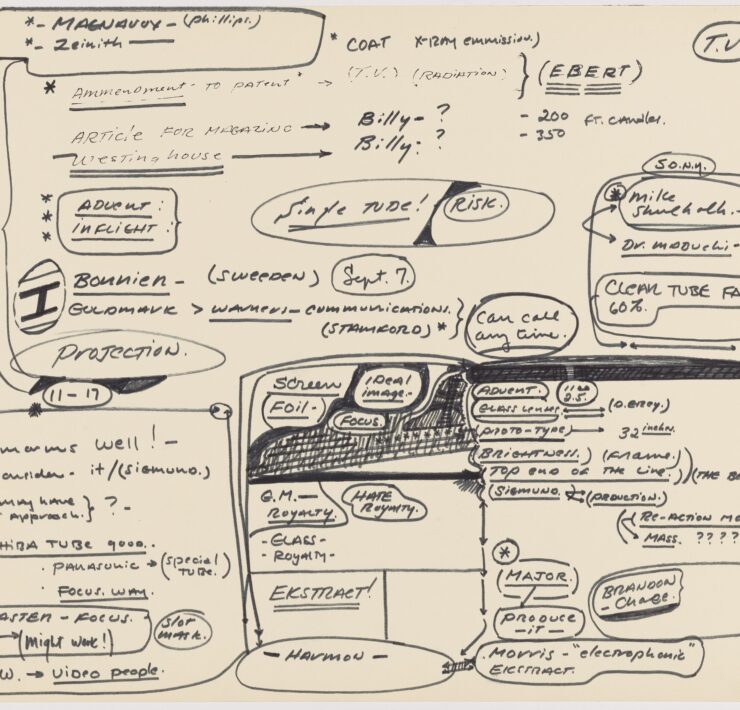 *- MAGNAVOX - (Phillips.)
*- Zeinith -
* COAT X-RAY emmission.)
T.V.
* Ammendment - TO patent * → (T.V.) (RADIATION) } (EBERT)
ARTICLE FOR MAGAZINE → Billy - ? - 200 FT. candles.
Westinghouse → Billy: ? - 350
* ADVENT :
* INFLIGHT :
*
Single TUDE! RISK.
SO.N.Y.
* Mike
Dr. maguchi -
CLEAR TUBE FA
60%.
I
BONNIER - (SWEEDEN) Sept. 7.
GOLDMARK > WARNERS - communications.
(STAMFORD) *
Can call
any time.
PROJECTION.
11 - 17
SCREEN
FOIL -
IDEAL
image -
FOCUS.
ADVENT.
GLASS Lenses.
PROTO - TYPE → 32 inches.
(BRIGHTNESS.) (Frame.)
TOP END OF THE LINE.) (THE B
(SIGMUND. (PRODUCTION.)
(RE-ACTION MO
MASS. ????
well! -
onsider - it / (SIGMUND.)
may have
approach.} ? -
HIBA TUBE good..
. PANASONIC → (special
TUBE.)
FOCUS. WAY.
ASTER - FOCUS. -
→ (might work!)
Slot
mask.
W. → VIDEO people.
G.M. -
ROYALTY.
HATE
ROYALTY.
- GLASS -
- ROYALTY -
EKSTRACT!
*
(MAJOR.)
PRODUCE
- IT -
BRANDON
- Chase.
- HARMON -
. MORRIS - "electrophonic"
EKSTRACT.